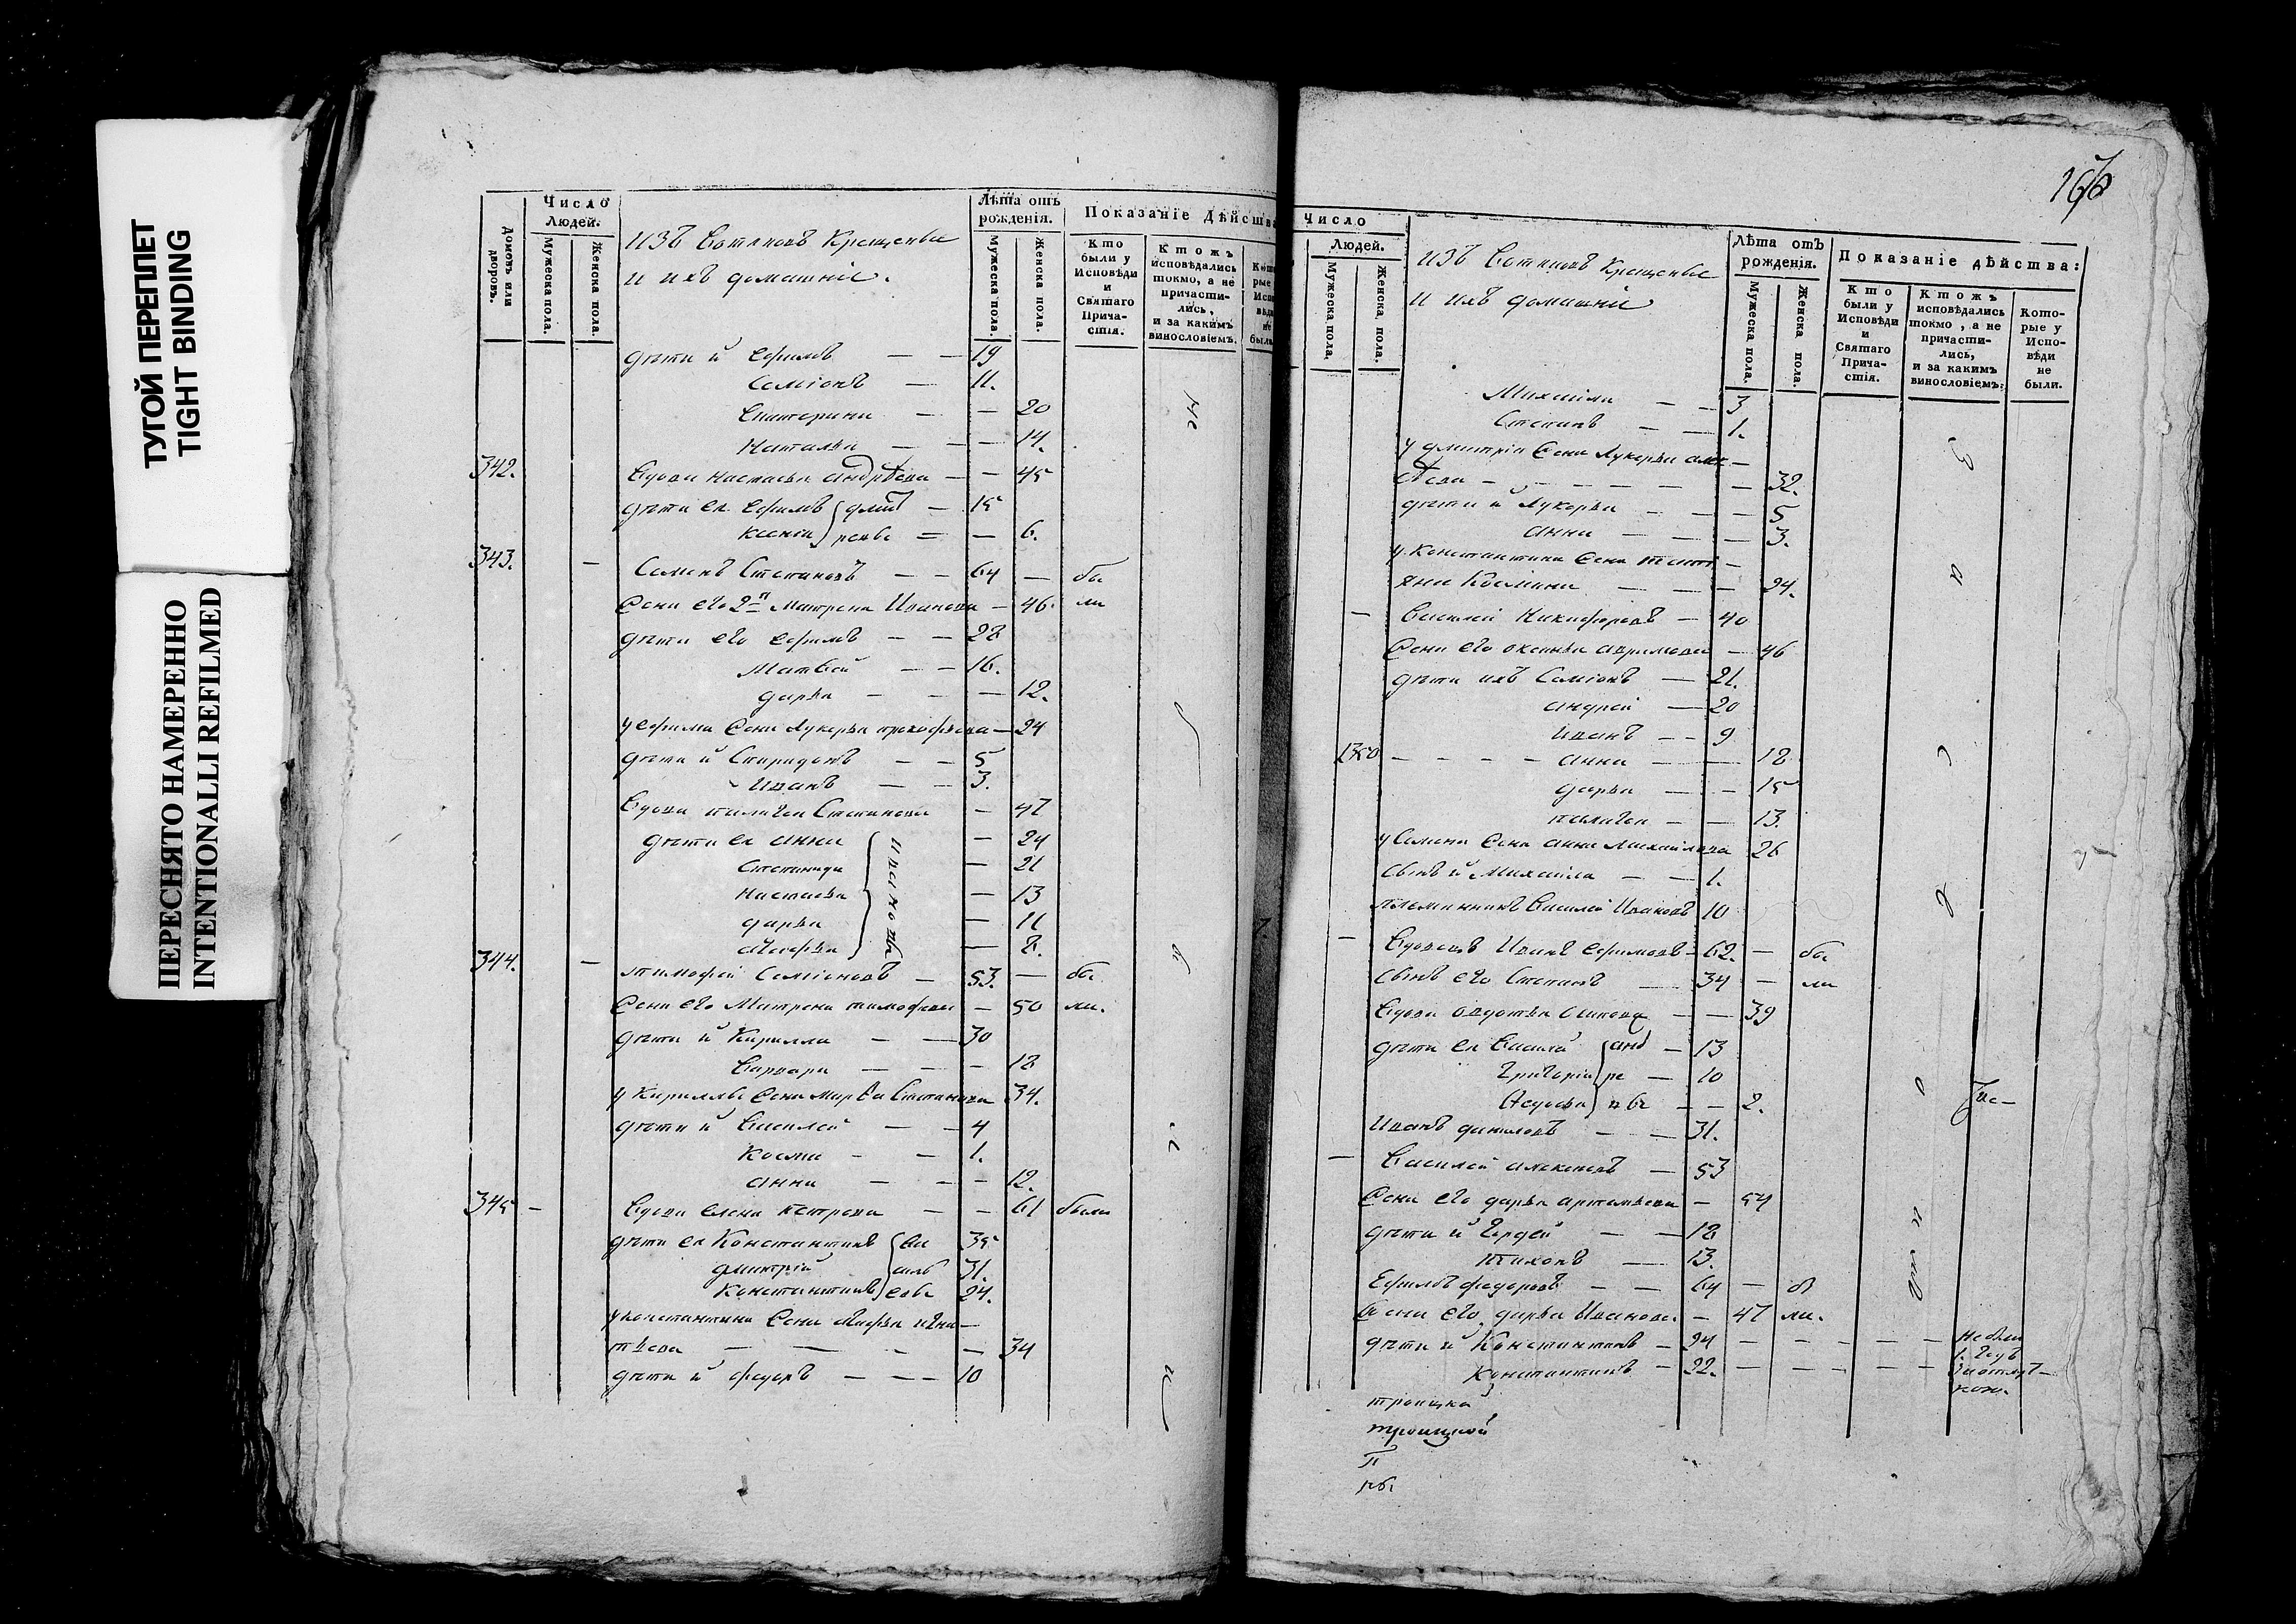 ТУГОЙ ПЕРЕПЛЕТ
TIGHT BINDING
ПЕРЕСНЯТО НАМЕРЕННО
INTENTIONALLI REFILMED
Домовъ или дворовъ.
Число Людей.
Мужеска пола.
Женска пола.
изъ Вотяковъ Крещеные
и ихъ домашніе.
Лѣта отъ рожденія.
Мужеска пола.
Женска пола.
Показаніе дѣйства
Кто были у Исповѣди и Святаго Прича-стія.
Ктожъ исповѣдались токмо, а не причасти-лись, и за какимъ винословіемъ.
дѣти й Ефимъ — — 19
Семіонъ — 11.
Екатерина — — 20
Наталья — — — 14.
342. Вдова Настасья Андрѣева — — 45
дѣти ея Ефимъ — 15
Ксенія — — 6.
343. — Семенъ Степановъ — — 64 — бы
Жена его 2я Матрена Иванова — 46. ли
дѣти его Ефимъ — — 28
Матвей — — 16.
Дарья — — — 12.
у Ефима жена Лукерья Прокофьева — 24
дѣти й Спиридонъ — — 5
Иванъ — — 3.
Вдова Палагея Степанова — 47
дѣти ея Анна — 24
Степанида — 21
Настасья — 13
Дарья — 11
Марфа — 8.
344. — Тимофей Семіоновъ — 53. — бы
Жена его Матрена Тимофеева — 50 ли.
дѣти й Кирилла — — 30
Варвара — — — 18
у Кириллы жена Марфа Степанова 34.
дѣти й Василей — — 4
Косма — — 1.
Анна — — — 12.
345 — Вдова Елена Петрова — — 61 были
дѣти ея Константинъ 35
Дмитрій 31.
Константинъ 24.
у Константина жена Марфа Игна —
тьева — — — — 34
дѣти й Федоръ — — — 10
168
Число Людей.
Мужеска пола.
Женска пола.
изъ Вотяковъ Крещеные
и ихъ домашніе
Лѣта отъ рожденія.
Мужеска пола.
Женска пола.
Показаніе дѣйства:
Кто были у Исповѣди и Святаго Прича-стія.
Ктожъ исповѣдались токмо, а не причасти-лись, и за какимъ винословіемъ:
Кото-рые у Испо-вѣди не были.
Михаила — — 3
Степанъ — — 1.
у Дмитрія жена Лукерья Алек —
сѣева — — — — — — 32.
дѣти й Лукерья — — — 5
Анна — — — 3.
у Константина жена Тати —
яна Космина — — — 24.
— Василей Никифоровъ — 40
Жена его Оксинья — 46
дѣти ихъ Семіонъ — 21.
Андрей — 20
Иванъ — — 9
— — — — Анна — — 18
Дарья — — 15
Палагея — — 13.
у Семена жена Анна Михайлова 26
сынъ й Михаила — — 1.
племянникъ Василей Ивановъ 10
— Вдовецъ Иванъ Ефимовъ — 62. — бы
сынъ его Степанъ — 34 — ли
Вдова Авдотья Осипова — — 39
дѣти ея Василей — 13
Григорій — 10
Федосья — — 2.
Иванъ Даниловъ — — 31.
— Василей Алексеевъ — 53
Жена его Дарья Артемьева — 54
дѣти й Гордей — — 18
Тихонъ — 13.
Ефимъ Федоровъ — — 64 — бы
Жена его Дарья Иванова — 47 ли.
дѣти й Константинъ — 24 — — — — не были
Константинъ — 22. — — — —
1. годъ
за отлуч —
кою.
троицкой
троицкой
П